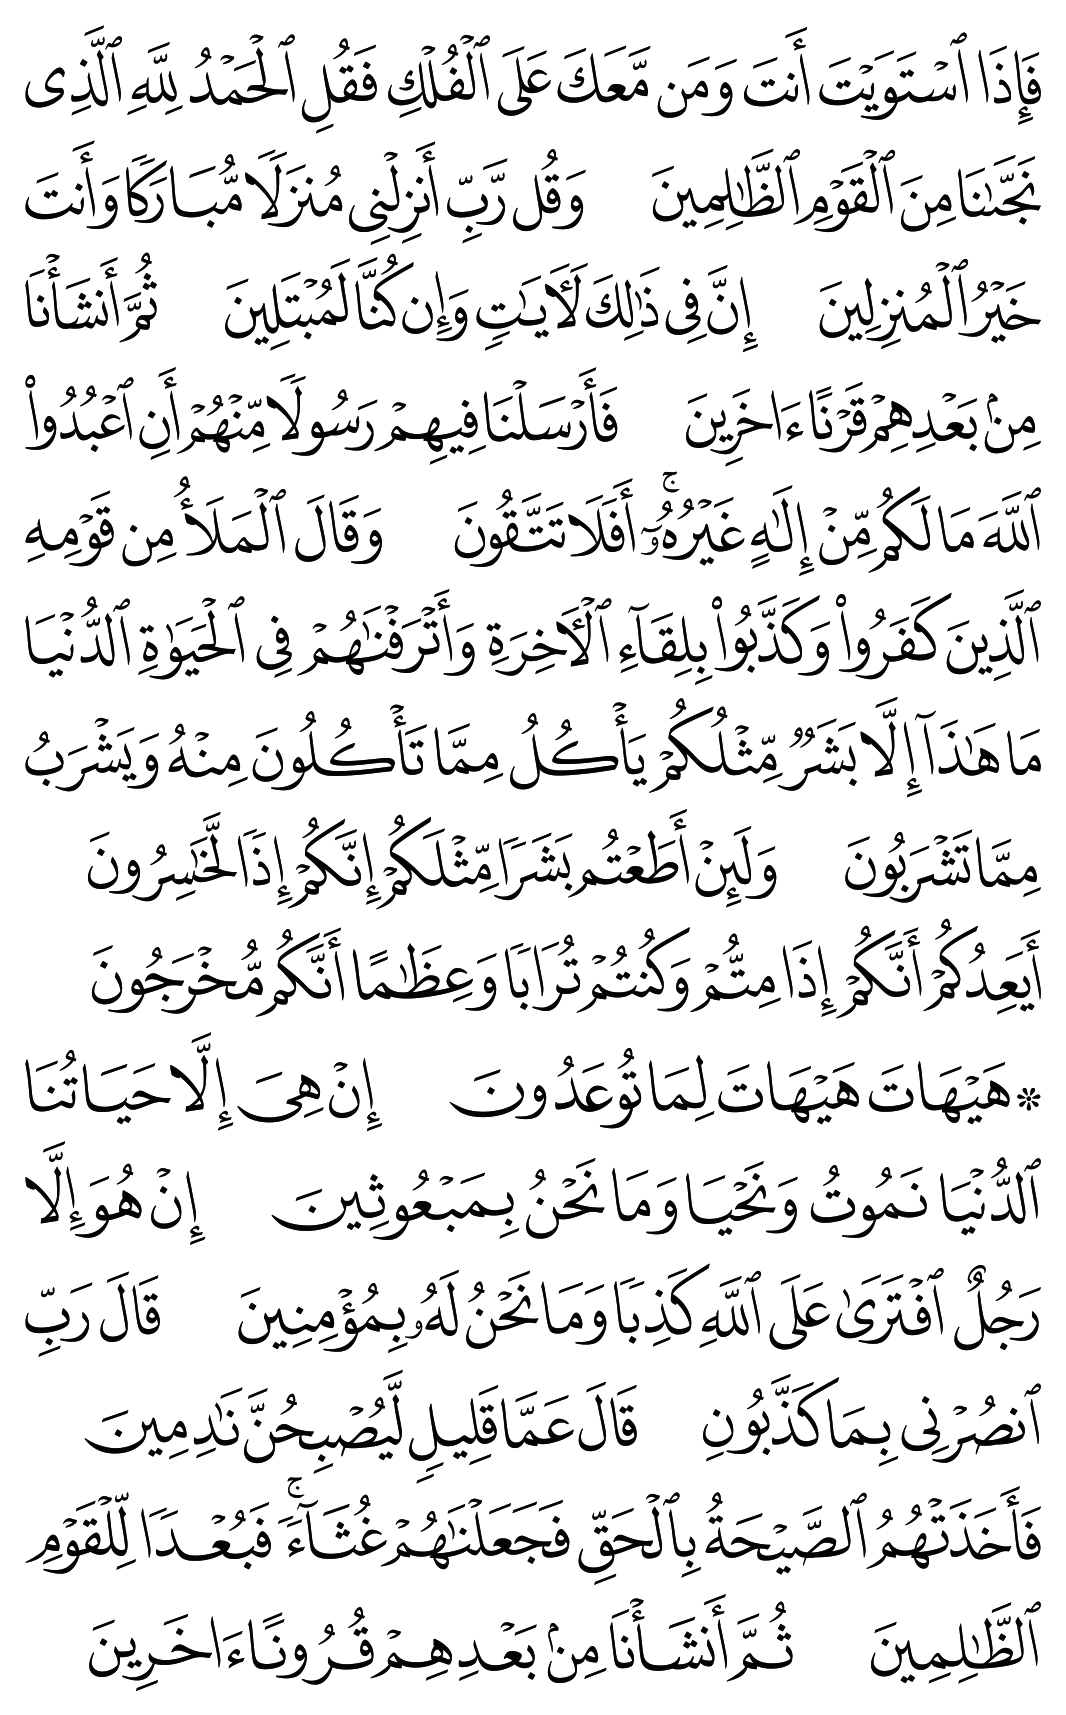 فَإِذَا ٱسْتَوَيْتَ أَنتَ وَمَن مَّعَكَ عَلَى ٱلْفُلْكِ فَقُلِ ٱلْحَمْدُ لِلَّهِ ٱلَّذِى
نَجَّىٰنَا مِنَ ٱلْقَوْمِ ٱلظَّٰلِمِينَ وَقُل رَّبِّ أَنزِلْنِى مُنزَلًا مُّبَارَكًا وَأَنتَ
خَيْرُ ٱلْمُنزِلِينَ إِنَّ فِى ذَٰلِكَ لَـَٔايَـٰتٍ وَإِن كُنَّا لَمُبْتَلِينَ ثُمَّ أَنشَأْنَا
مِنۢ بَعْدِهِمْ قَرْنًا ءَاخَرِينَ فَأَرْسَلْنَا فِيهِمْ رَسُولًا مِّنْهُمْ أَنِ ٱعْبُدُوا۟
ٱللَّهَ مَا لَكُم مِّنْ إِلَـٰهٍ غَيْرُهُۥٓ ۚ أَفَلَا تَتَّقُونَ وَقَالَ ٱلْمَلَأُ مِن قَوْمِهِ
ٱلَّذِينَ كَفَرُوا۟ وَكَذَّبُوا۟ بِلِقَآءِ ٱلْـَٔاخِرَةِ وَأَتْرَفْنَـٰهُمْ فِى ٱلْحَيَوٰةِ ٱلدُّنْيَا
مَا هَـٰذَآ إِلَّا بَشَرٌ مِّثْلُكُمْ يَأْكُلُ مِمَّا تَأْكُلُونَ مِنْهُ وَيَشْرَبُ
مِمَّا تَشْرَبُونَ وَلَئِنْ أَطَعْتُم بَشَرًا مِّثْلَكُمْ إِنَّكُمْ إِذًا لَّخَـٰسِرُونَ
أَيَعِدُكُمْ أَنَّكُمْ إِذَا مِتُّمْ وَكُنتُمْ تُرَابًا وَعِظَـٰمًا أَنَّكُم مُّخْرَجُونَ
* هَيْهَاتَ هَيْهَاتَ لِمَا تُوعَدُونَ إِنْ هِىَ إِلَّا حَيَاتُنَا
ٱلدُّنْيَا نَمُوتُ وَنَحْيَا وَمَا نَحْنُ بِمَبْعُوثِينَ إِنْ هُوَ إِلَّا
رَجُلٌ ٱفْتَرَىٰ عَلَى ٱللَّهِ كَذِبًا وَمَا نَحْنُ لَهُۥ بِمُؤْمِنِينَ قَالَ رَبِّ
ٱنصُرْنِى بِمَا كَذَّبُونِ قَالَ عَمَّا قَلِيلٍ لَّيُصْبِحُنَّ نَـٰدِمِينَ
فَأَخَذَتْهُمُ ٱلصَّيْحَةُ بِٱلْحَقِّ فَجَعَلْنَـٰهُمْ غُثَآءً ۚ فَبُعْدًا لِّلْقَوْمِ
ٱلظَّـٰلِمِينَ ثُمَّ أَنشَأْنَا مِنۢ بَعْدِهِمْ قُرُونًا ءَاخَرِينَ